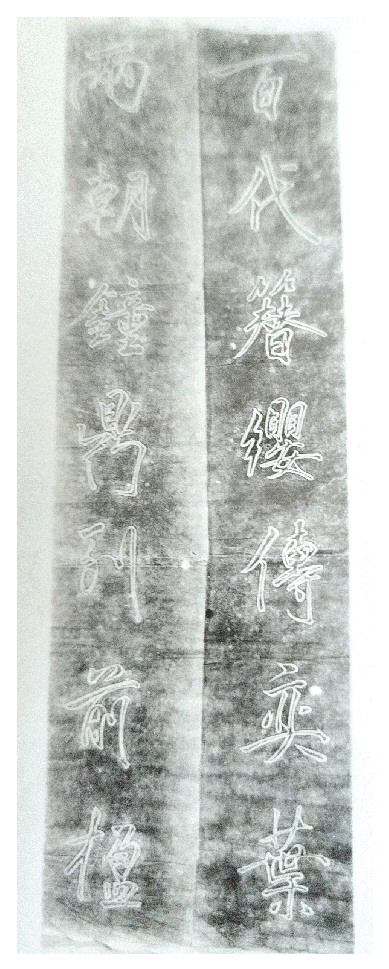 百代簪纓傳奕葉
兩朝鐘鼎列前楹